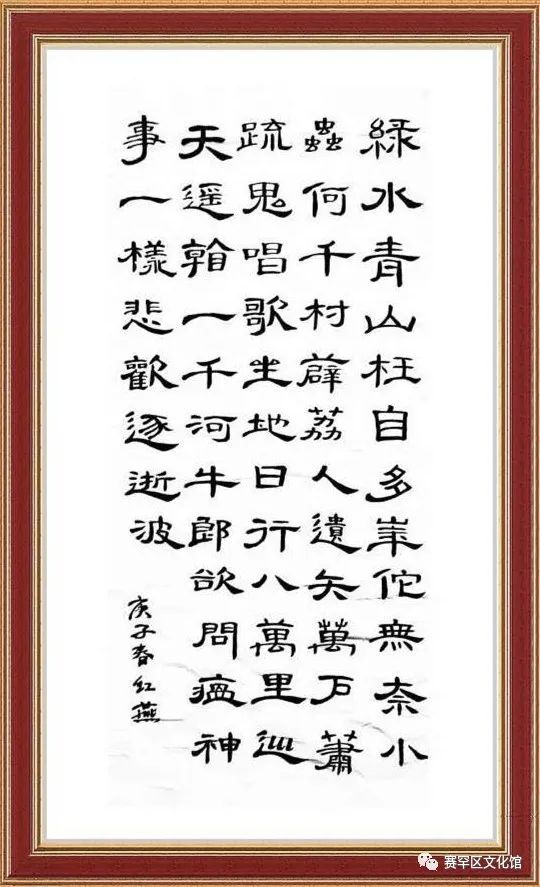 緑水青山枉自多崋佗無奈小
蟲何千村薜荔人遺矢萬戶蕭
疏鬼唱歌坐地日行八萬里巡
天遥看一千河牛郎欲問瘟神
事一樣悲歡逐逝波
庚子春红燕
赛罕区文化馆